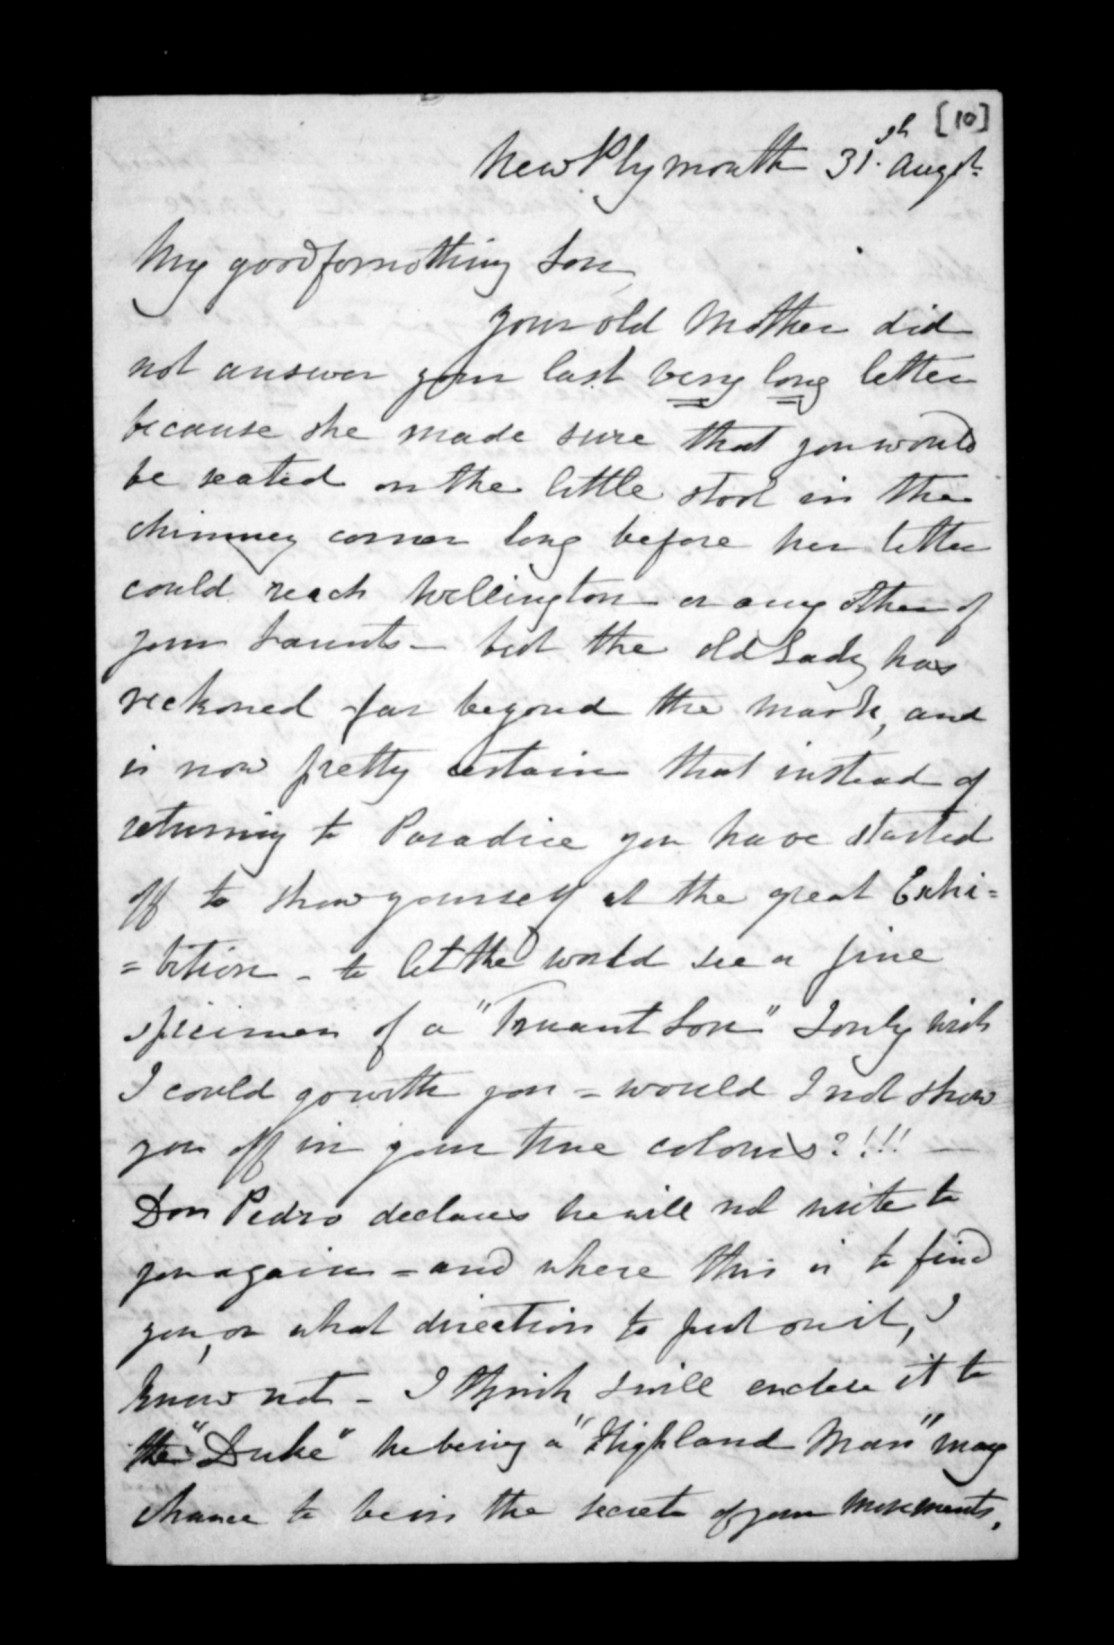 [10]
New Plymouth 31.st Augst.
My goodfornothing Son,
your old Mother did
not answer your last very long letter
because she made sure that you would
be seated on the little stool in the
chimney corner long before her letter
could reach Wellington or any other of
your haunts - but the old Lady has
reckoned far beyond the mark, and
is now pretty certain that instead of
returning to Paradise you have started
off to show yourself at the great Exhi=
=bition - to let the world see a fine
specimen of a "Truant Son" I only wish
I could go with you = would I not show
you off in your true colours?!!! —
Don Pedro declares he will not write to
you again = and where this is to find
you, or what direction to put on it, I
know not - I think I will enclose it to
the "Duke" he being a "Highland Man" may
chance to be in the secret of your movements,